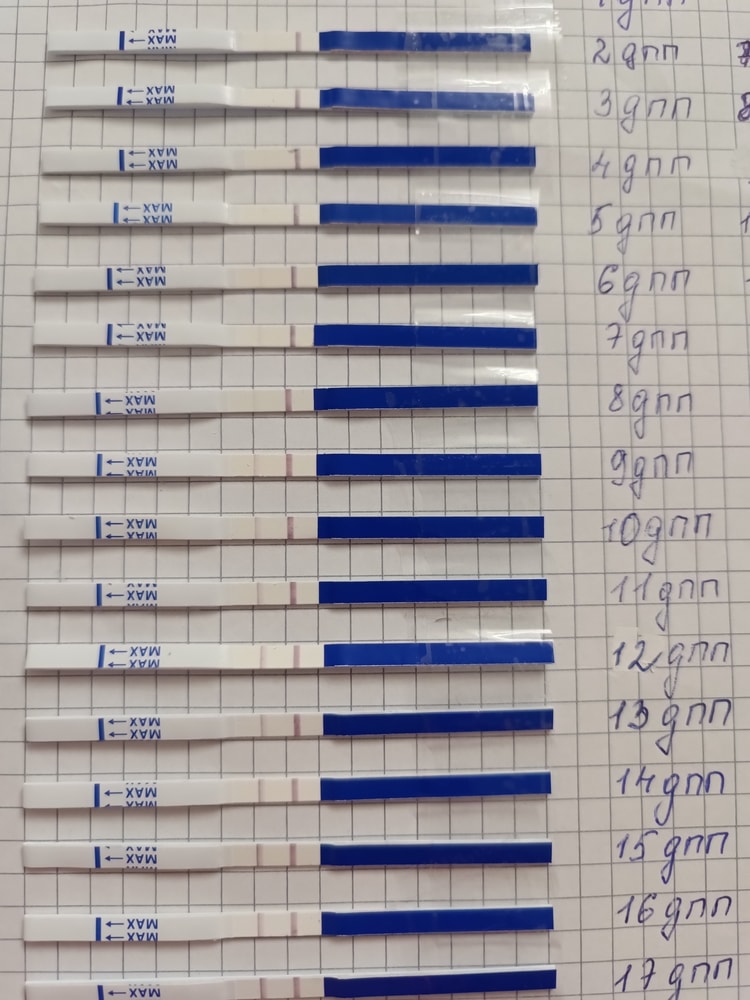 1 дпп
MAX 2 дпп
MAX MAX 3 дпп
MAX MAX 4 дпп
MAX MAX 5 дпп
MAX MAX 6 дпп
MAX MAX 7 дпп
MAX MAX 8 дпп
MAX MAX 9 дпп
MAX MAX 10 дпп
MAX MAX 11 дпп
MAX MAX 12 дпп
MAX MAX 13 дпп
MAX MAX 14 дпп
MAX 15 дпп
MAX MAX 16 дпп
MAX 17 дпп